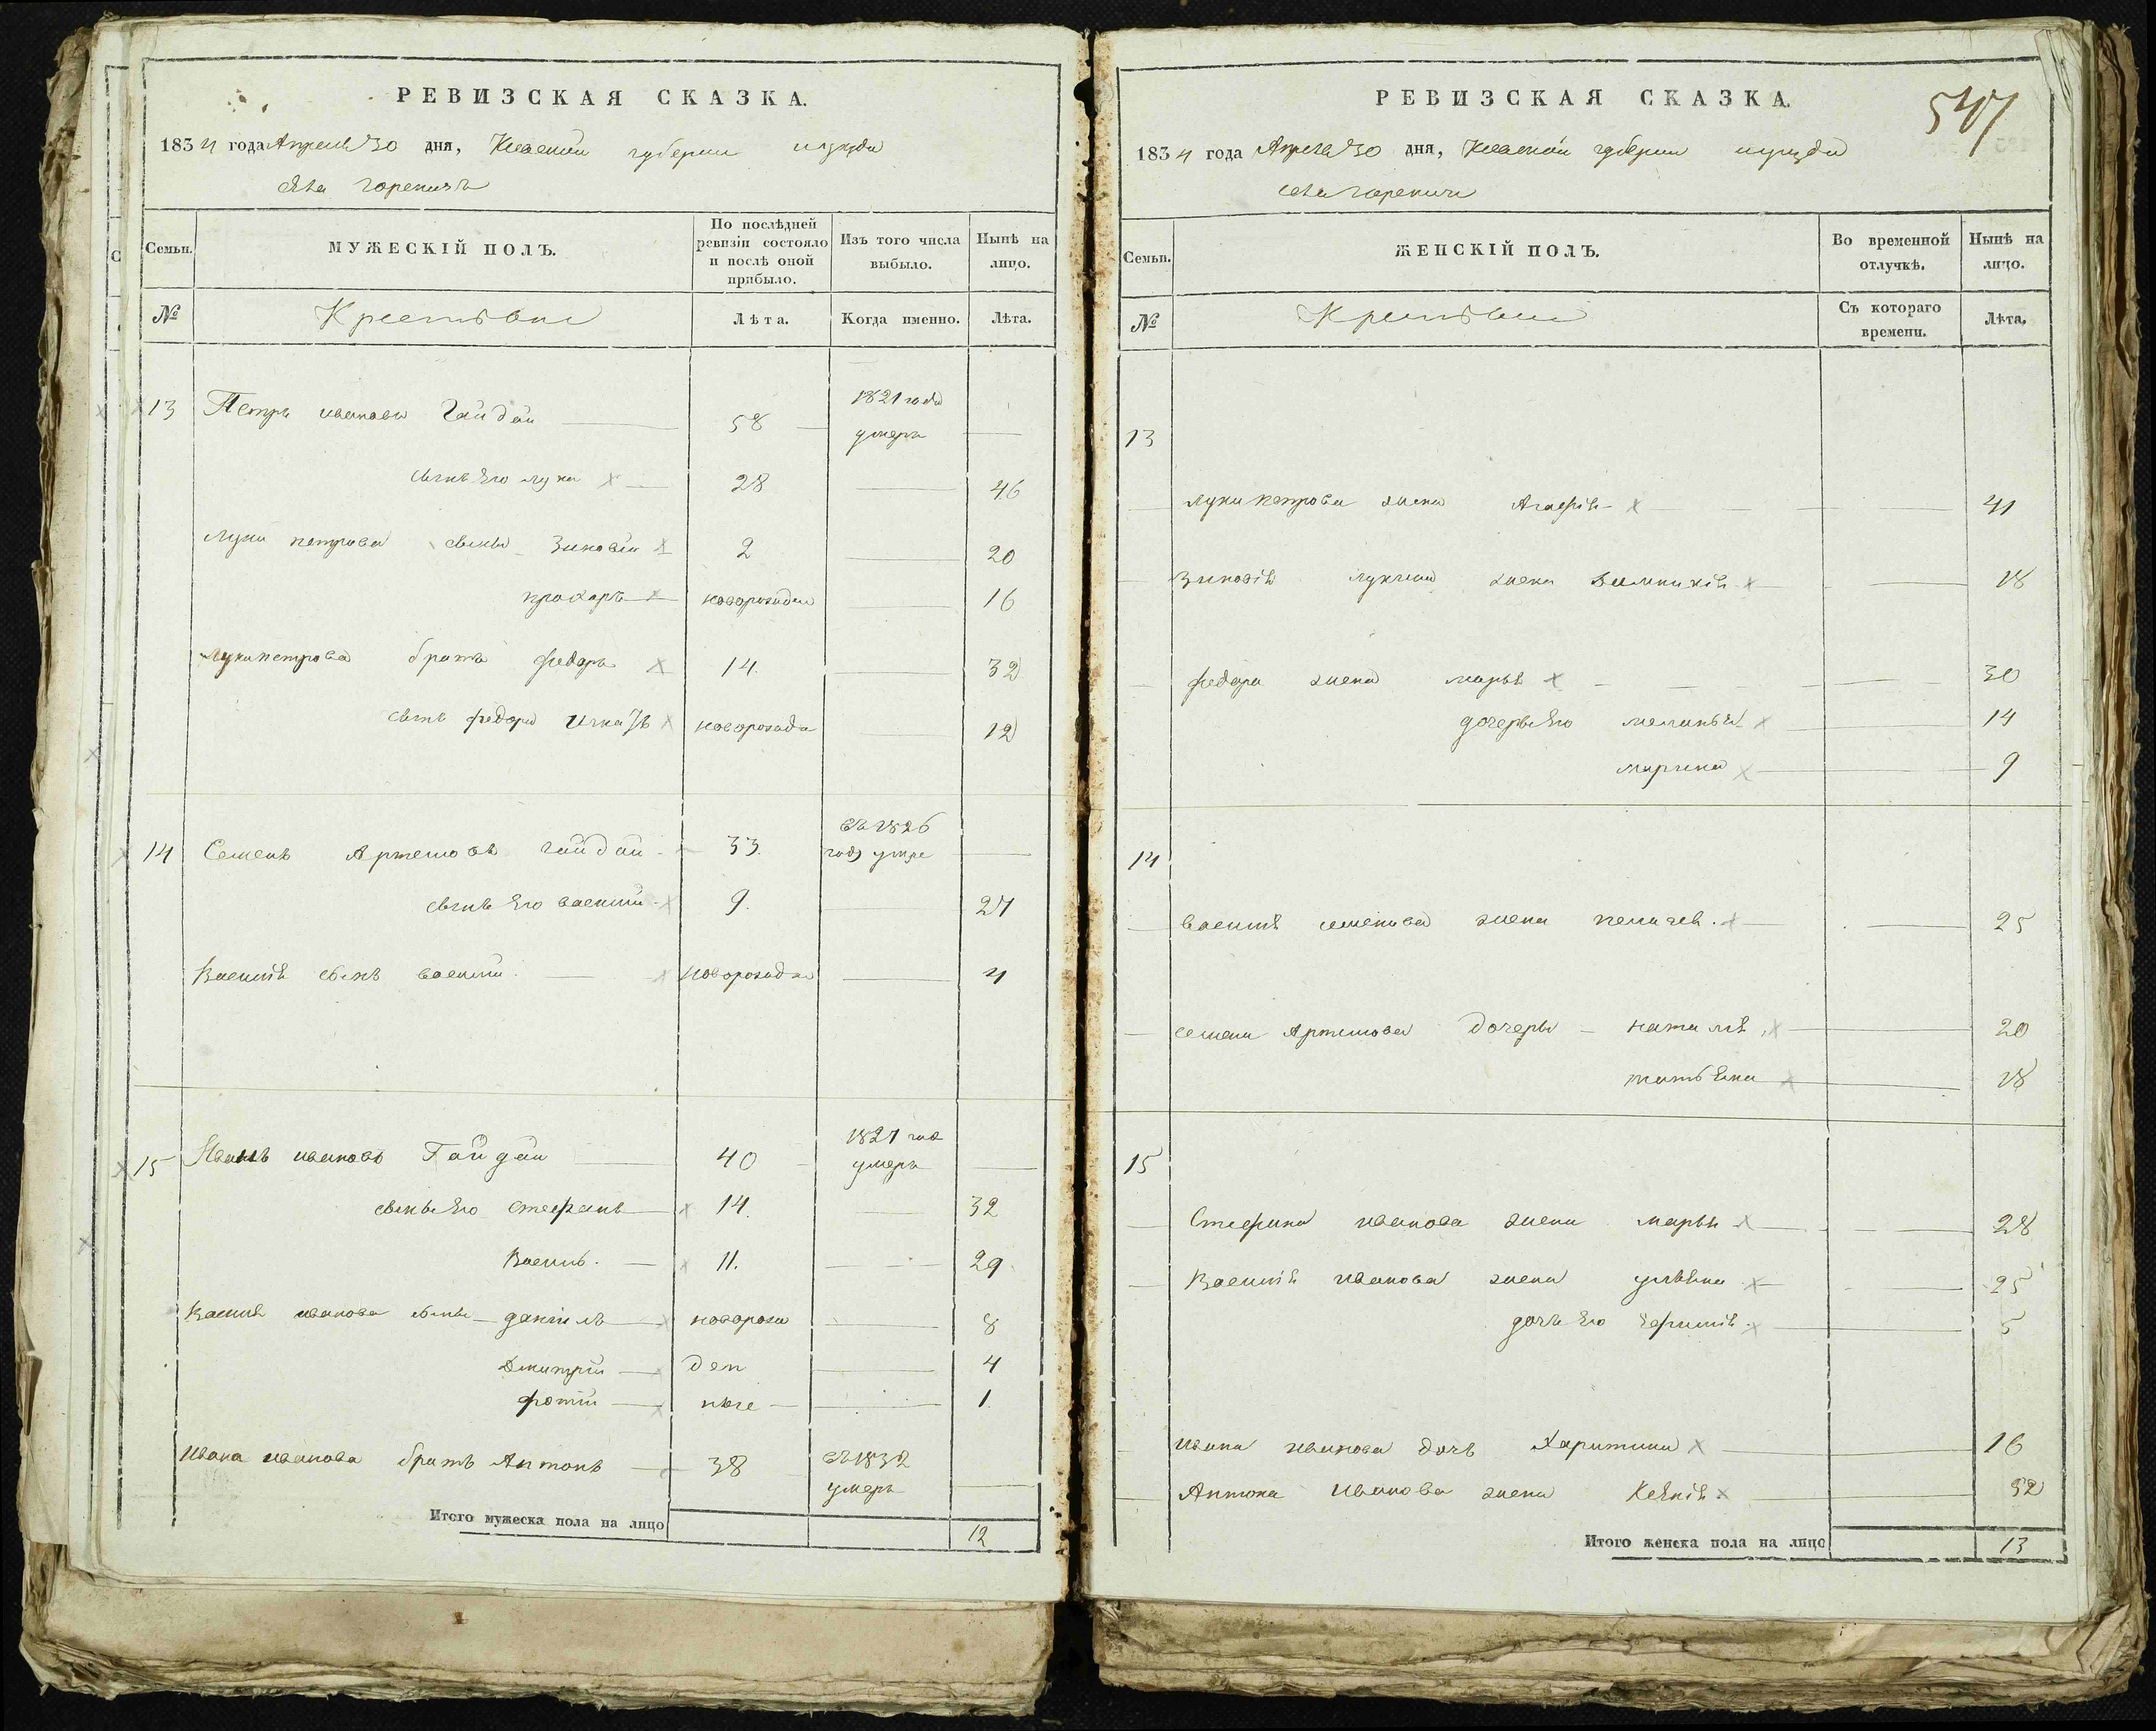 РЕВИЗСКАЯ СКАЗКА.
1834 года Апреля 30 дня, Киевской губернии и уезда
села гореничь
Семьи.
МУЖЕСКІЙ ПОЛЪ.
По послѣдней ревизіи состояло и послѣ оной прибыло.
Изъ того числа выбыло.
Нынѣ на лицо.
№
Крестьяне
Лѣта.
Когда именно.
Лѣта.
13 Петръ ивановъ Гайдай 58 1821 года умеръ
сынъ Его лука 28 46
луки петрова сыны Зиновій 2 20
прохоръ новорожден 16
луки петрова братъ федоръ 14. 32
сынъ федора игнатъ новорожде 12
14 Семенъ Артемовъ гайдай 33. въ 1826 году умре
сынъ Его василій 9. 27
Василія сынъ василій новорожде 4
15 Иванъ ивановъ Гайдай 40 1827 года умеръ
сынъ Его стефанъ 14. 32
Василь 11. 29
Василя иванова сыны данило новорож 8
Дмитрій ден 4
фотій ные 1
Ивана иванова братъ Антонъ 38 въ 1832 умеръ
Итого мужеска пола на лицо 12
РЕВИЗСКАЯ СКАЗКА.
547
1834 года Апреля 30 дня, Киевской губернии и уезда
села гореничи
Семьи.
ЖЕНСКІЙ ПОЛЪ.
Во временной отлучкѣ.
Нынѣ на лицо.
№
Крестьяне
Съ котораго времени.
Лѣта.
13
луки петрова жена Агафія 41
Зиновія лукина жена 18
федора жена марья 30
дочеры Его меланья 14
марина 9
14
василя семенова жена пелагея 25
семена Артемова дочеры наталя 20
татьяна 18
15
Стефана иванова жена марья 28
Василія иванова жена ульяна 25
дочь Его 5
ивана иванова дочь Харитина 16
Антона иванова жена Ксенія 52
Итого женска пола на лицо 13